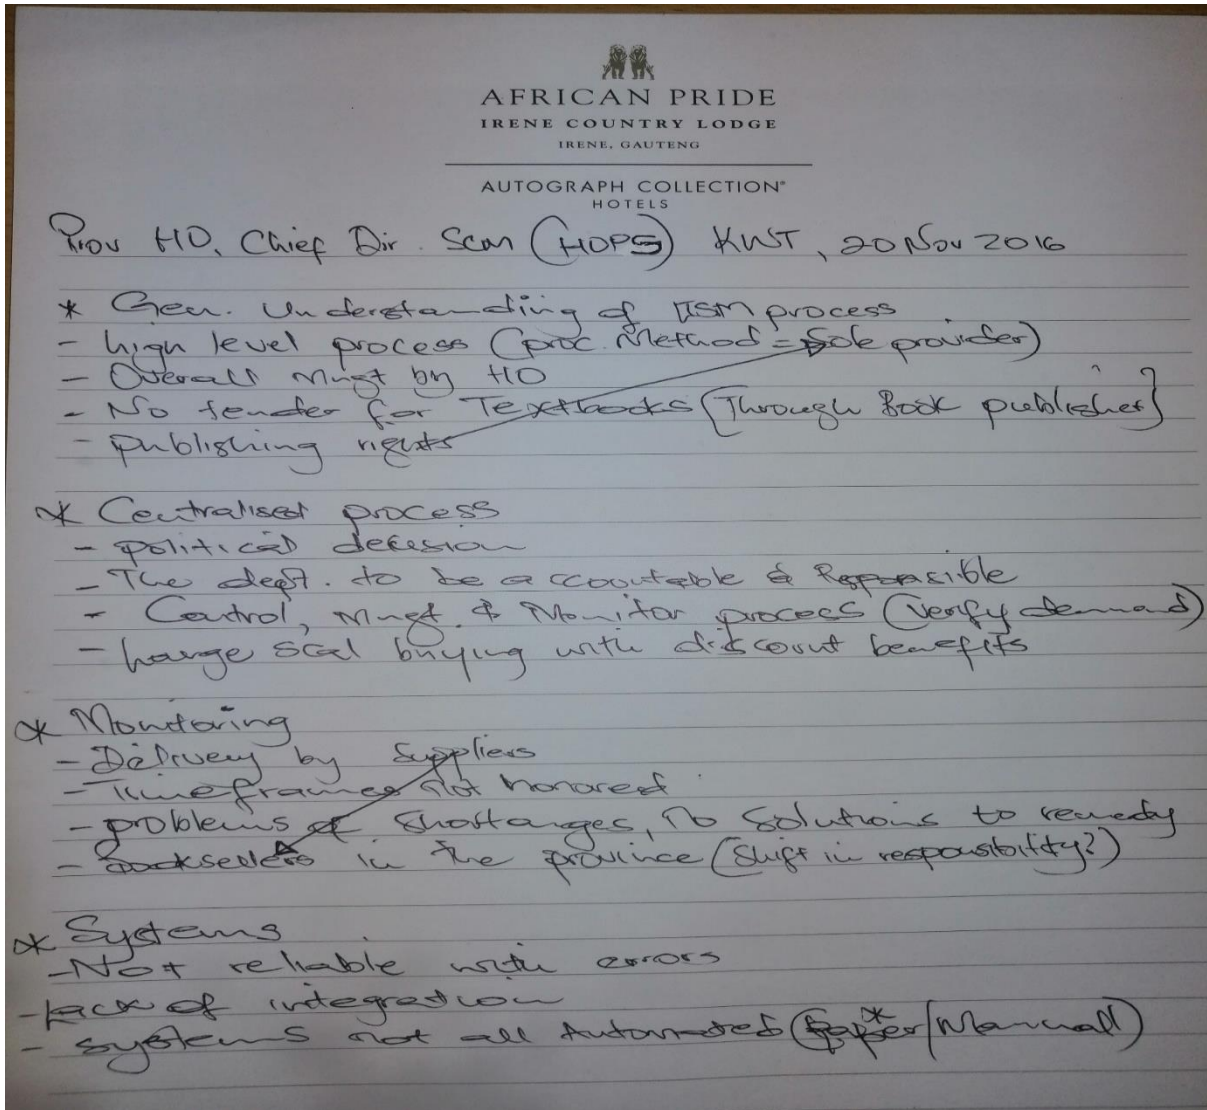 AFRICAN PRIDE
IRENE COUNTRY LODGE
IRENE, GAUTENG
AUTOGRAPH COLLECTION®
HOTELS
Prov HO, Chief Dir. Scm (HOPS) KWT, 20 Nov 2016
* Gen. Understanding of process
- high level process (proc. Method = Sole provider)
- Overall Mngt by HO
- No tender for Textbooks [Through Book publisher}
- publishing rights
* Centralised process
- political decesion
- The dept. to be accountable & Responsible
- Control, Mngt. & Monitor process (Verify demand)
- Large scal buying with discount benefits
* Monitoring
- Delivery by Suppliers
- Timeframes not honored
- problems of shortanges, no solutions to remedy
- booksellers in the province (Shift in responsibility?)
* Systems
- Not reliable with errors
- lack of integration
- systems not all Automated (Paper*/Manual)